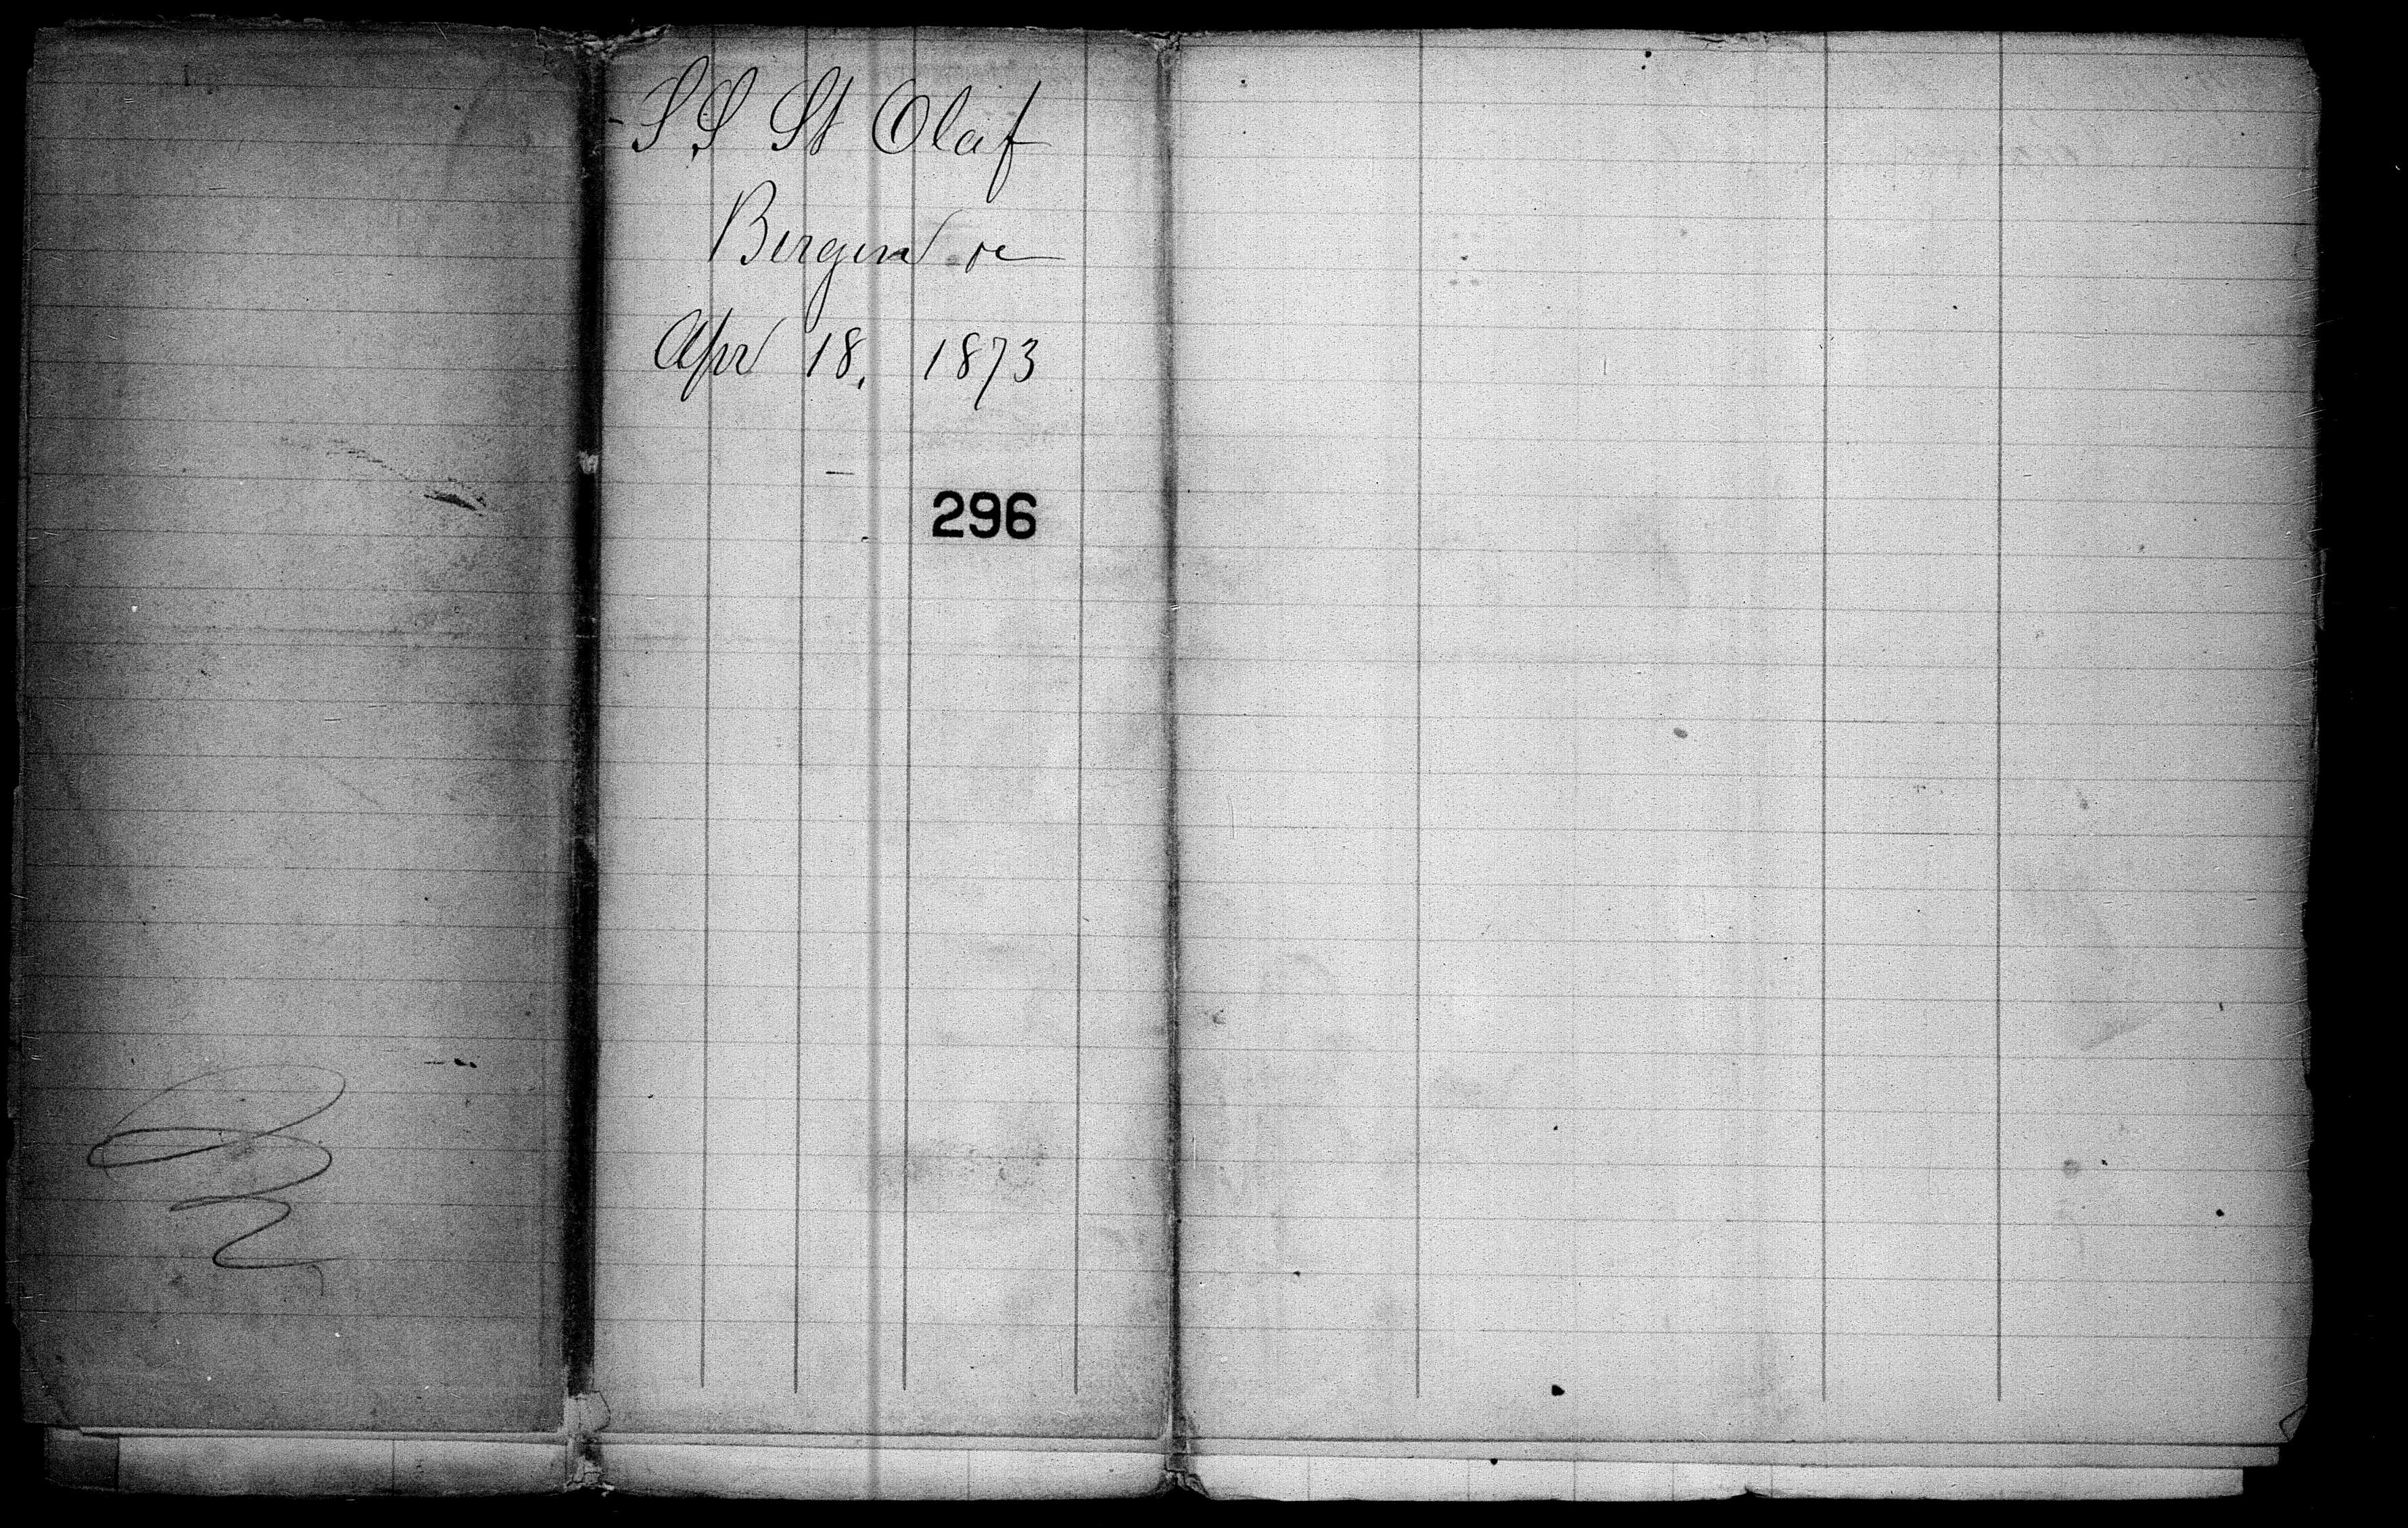 S.S St Olaf
Bergen &c
Apr 18. 1873
296